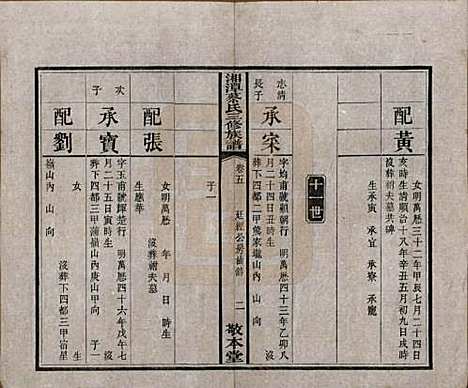 配黃
女明萬歷三十二年甲辰七月二十四日
亥時生清順治十八年辛丑五月初九日戌時
沒葬祔夫墓共碑
生承寅 承宜 承寮 承寵
十一世
志清
長子
承宋
字均甫號賴朝行 明萬歷四十三年乙卯八
月二十四日丑時生
葬下四都二甲熊家壠山內 山 向
湘潭蔡氏三修族譜
卷五
廷經公房補齡
二
敬本堂
子一
配張
女明萬歷 年 月 日 時生
沒葬祔夫墓
生應華
次
子
承寳
字玉甫號輝楚行 明萬歷四十六年戊午七
月二十五日寅時生
葬下四都三甲蒲嶺山內庚山甲向 子一
配劉
女 生
沒葬下四都三甲宿星
嶺山內 山 向